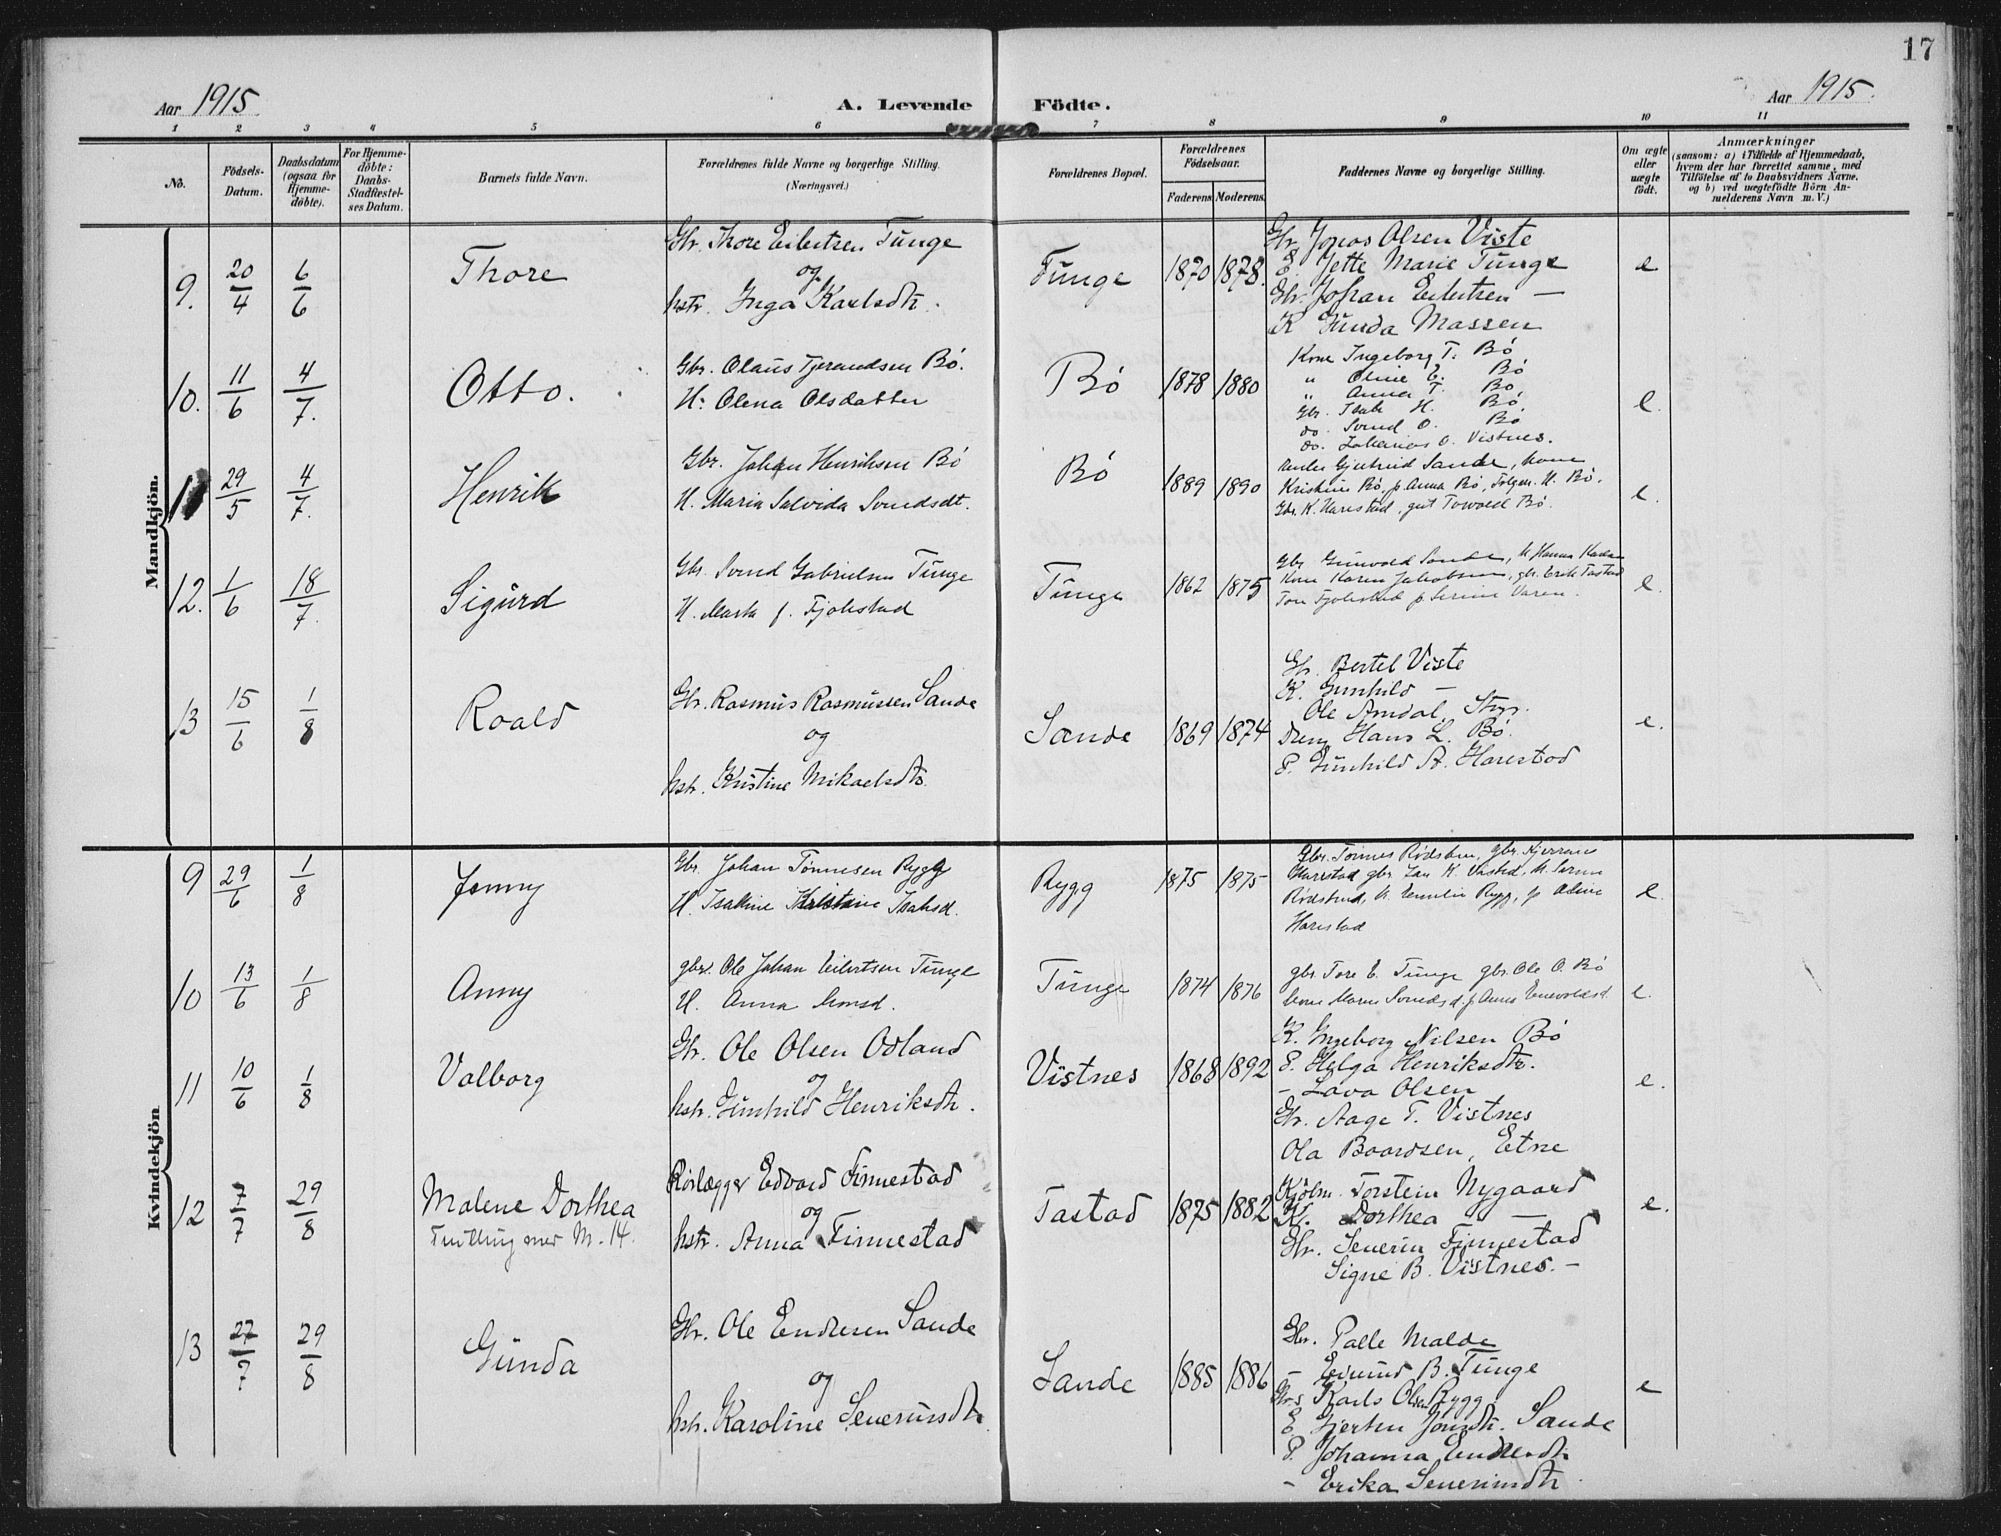 17
Aar 1915
A. Levende Födte.
Aar 1915.
1 2 3 4 5 6 7 8 9 10 11
No.
Födsels-
Datum.
Daabsdatum
(ogsaa for
Hjemme-
döbte).
For Hjemme-
döbte:
Daabs-
Stadfestel-
ses Datum.
Barnets fulde Navn.
Forældrenes fulde Navne og borgerlige Stilling.
(Næringsvei.)
Forældrenes Bopæl.
Forældrenes
Födselsaar.
Faderens Moderens.
Faddernes Navne og borgerlige Stilling.
Om ægte
eller
uægte
født.
Anmærkninger
(saasom: a) i Tilfælde af Hjemmedaab,
hvem der har forrettet samme, med
Tilföielse af to Daabsvidners Navne,
og b) ved uægtefödte Börn An-
melderens Navn m. V.)
Mandkjön.
9. 20/4 6/6 Thore
Gbr. Thore Eilertsen Tunge
og
hstr. Inga Karlsdtr.
Tunge 1870 1878.
Gbr. Jonas Olsen Viste
E. Jette Marie Tunge
Gbr. Johan Eilertsen —
K Gunda Massen
e
10. 11/6 4/7. Otto.
Gbr. Olaus Tjerandsen Bø.
H. Olena Olsdatter
Bø 1878 1880
Kone Ingeborg T. Bø
" Oline E. Bø
" Anna T. Bø
Gbr. Isak H. Bø.
do. Svend O. Bø.
do. Zakarias O. Vistnes.
e.
11 29/5 4/7. Henrik
Gbr. Johan Henriksen Bø
H. Maria Salvida Svendsdt.
Bø 1889 1890
Gjertrud Sande, kone
Kristine Bø, p. Anna Bø, H. Bø.
Gbr. K. Harestad, gut Torvald Bø.
e.
12. 1/6 18/7. Sigurd
Gbr. Svend Gabrielsen Tunge
H. Marta f. Fjelestad
Tunge 1862 1875
Gbr Gunvald Sande, K. Hanna
Kone Karen Jakobsen, gbr. Erik Tastad
Tore p Serine
e.
13 15/6 1/8 Roald
Gbr. Rasmus Rasmussen Sande
og
hstr. Kristine Mikaelsdtr.
Sande 1869 1874
Gbr. Bertel Viste
K. Gunhild —
Ole Arndal, Styr.
Dreng Hans L. Bø.
P. Gunhild A. Harestad
e.
Kvindekjön
9 29/6 1/8 Jenny
Gbr. Johan Tønnesen Rygg
H. Isakine Kristine Isaksd.
Rygg 1875 1875
Gbr. Tønnes Rødstøen, gbr. Kjerran
Harestad gbr. K. Vistad, K.
K. Emelie Rygg, p
Harestad
e.
10 13/6 1/8 Anny
gbr. Ole Johan Eilertsen Tunge
H. Anna Monsd.
Tunge 1874 1876
gbr Tore E. Tunge gbr. Ole O. Bø
kone Maren Svendsd. p Anna Enevoldsd.
e.
11 10/6 1/8 Valborg
Gbr. Ole Olsen Odland
og
hstr. Gunhild Henriksdtr.
Vistnes 1868 1892
K. Ingeborg Nilsen Bø
P. Helga Henriksdtr.
– Lava Olsen
Gbr. Aage T. Vistnes
Ola Baardsen, Etne
e.
12 7/7 29/8 Malene Dorthea
Tvilling med M. 14.
Rørlægger Edvard Finnestad
og
hstr. Anna Finnestad
Tastad 1875 1882
Kjølm. Torstein Nygaard
K. Dorthea —
Gbr. Severin Finnestad
Signe B. Vistnes. –
e.
13 27/7 29/8 Gunda
Gbr. Ole Endresen Sande
og
hstr. Karoline Severinsdtr.
Sande 1885 1886
Gbr. Palle Malde
– Edvind B. Tunge
Gbr. Karls Olsen Rygg
E Gjerten Jonsdtr. Sande
P. Johanna Endresdtr.
– Erika Severinsdtr
e